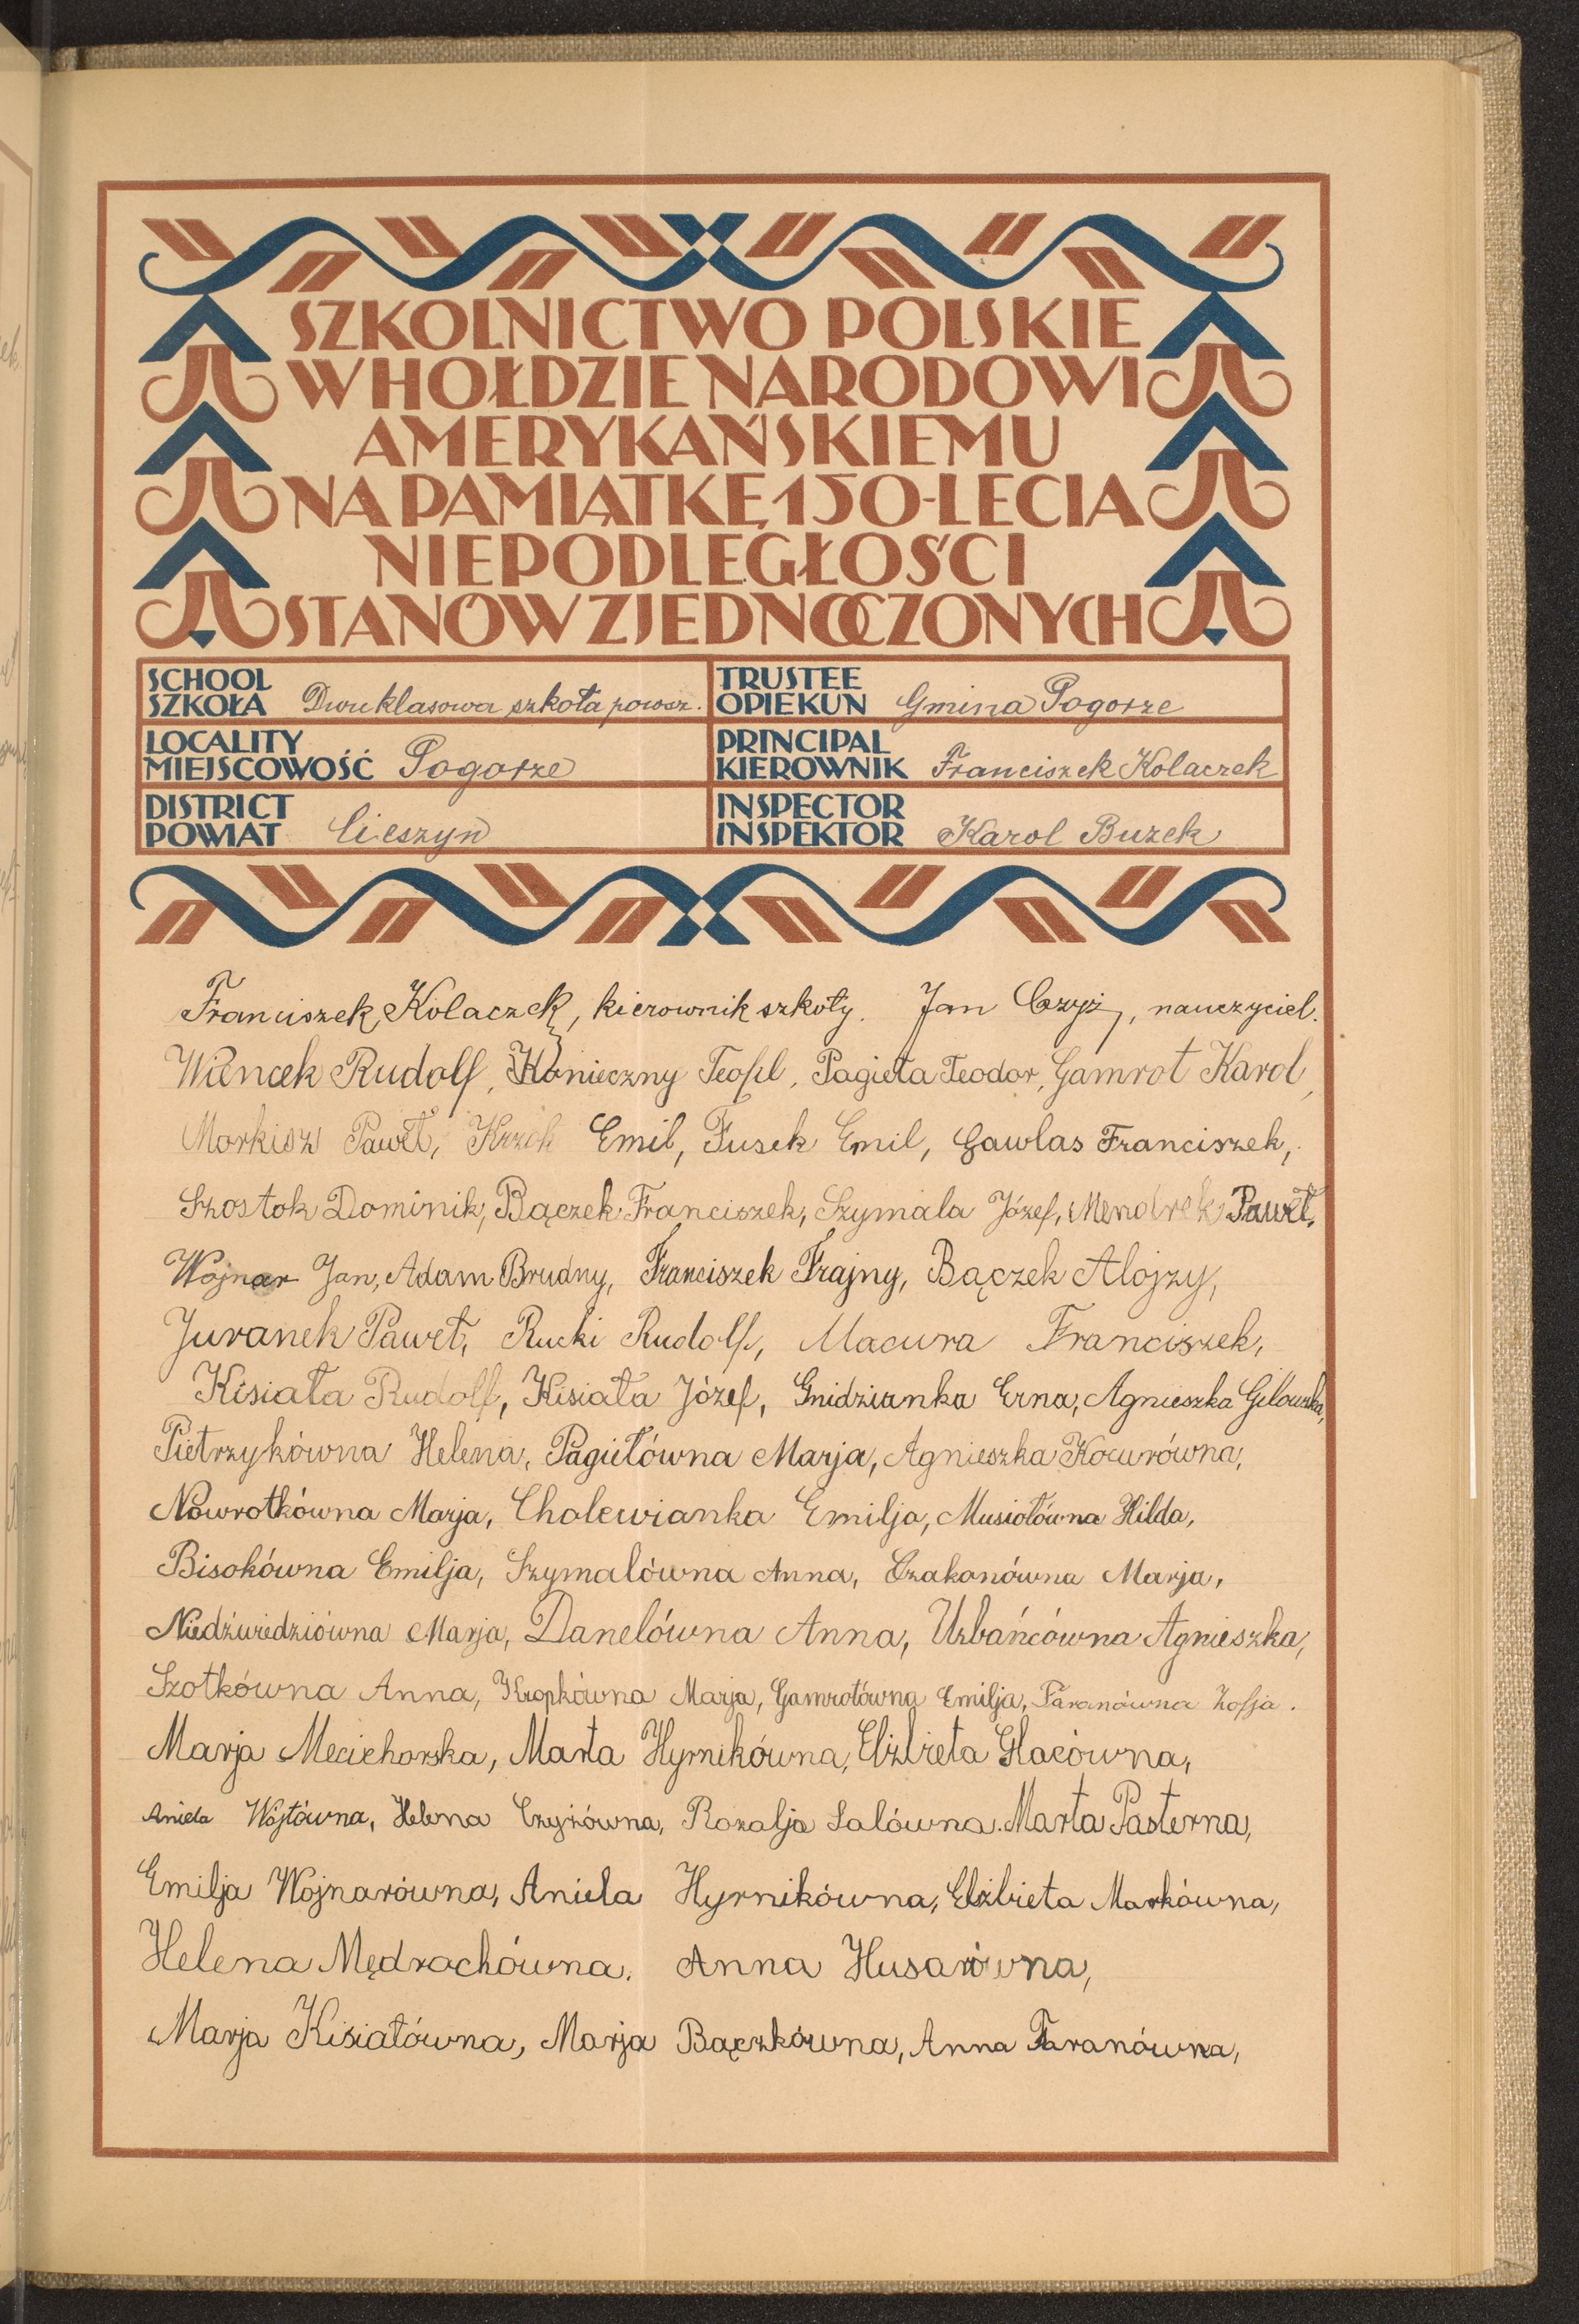 SZKOLNICTWO POLSKIE
W HOŁDZIE NARODOWI
AMERYKAŃSKIEMU
NA PAMIĄTKĘ 150-LECIA
NIEPODLEGŁOŚCI
STANÓW ZJEDNOCZONYCH
SCHOOL
SZKOŁA Dwuklasowa szkoła powsz.
TRUSTEE
OPIEKUN Gmina Pogorze
LOCALITY
MIEJSCOWOŚĆ Pogorze
PRINCIPAL
KIEROWNIK Franciszek Kolaczek
DISTRICT
POWIAT Cieszyn
INSPECTOR
INSPEKTOR Karol Buzek
Franciszek Kolaczek, kierownik szkoły. Jan Czyż, nauczyciel.
Wiencek Rudolf, Konieczny Teofil, Pagieła Teodor, Gamrot Karol,
Morkisz Paweł, Krzok Emil, Fusek Emil, Gawlas Franciszek,
Szostok Dominik, Bączek Franciszek, Szymala Józef, Mendrek Paweł,
Wojnar Jan, Adam Brudny, Franciszek Frajny, Bączek Alojzy,
Juranek Paweł, Rucki Rudolf, Macura Franciszek,
Kisiała Rudolf, Kisiała Józef, Gnidzianka Erna, Agnieszka
Pietrzykówna Helena, Pagiełówna Marja, Agnieszka Kocurówna,
Nowrotkówna Marja, Cholewianka Emilja, Musiołówna Hilda,
Bisokówna Emilja, Szymalówna Anna, Czakonówna Marja,
Niedźwiedziówna Marja, Danelówna Anna, Urbańcówna Agnieszka,
Szotkówna Anna, Kropkówna Marja, Gamrotówna Emilja, Faranówna Zofja.
Marja Mecichorska, Marta Hyrnikówna, Elżbieta Glacówna,
Aniela Wojtówna, Helena Czyżówna, Rozalja Salówna. Marta Pasterna,
Emilja Wojnarówna, Aniela Hyrnikówna, Elżbieta Markówna,
Helena Mędrochówna. Anna Husarówna,
Marja Kisiałówna, Marja Bączkówna, Anna Faranówna,